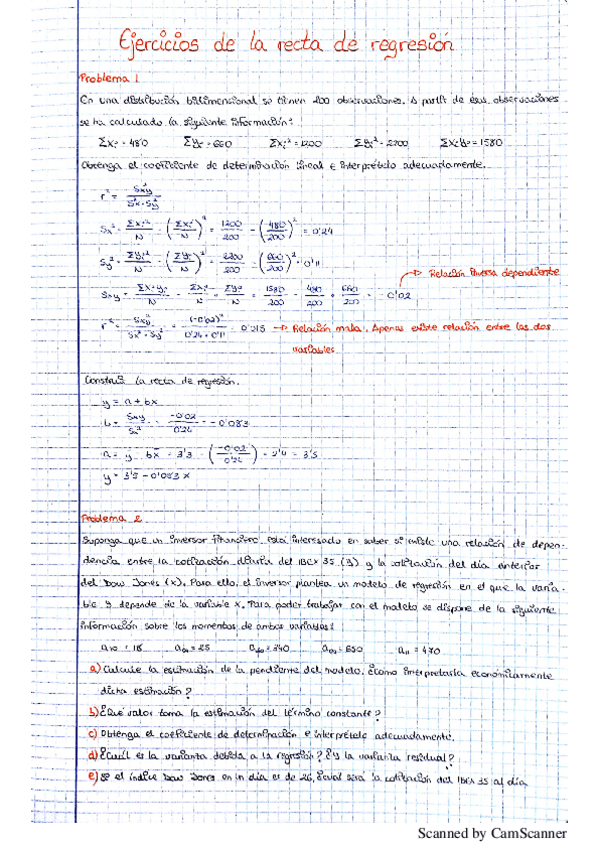 Ejercicios de la recta de regresión
Problema 1
En una distribución bidimensional se tienen 200 observaciones. A partir de esas observaciones
se ha calculado la siguiente información:
Σxi = 480 Σyi = 660 Σxi² = 1200 Σyi² = 2200 Σxiyi = 1580
Obtenga el coeficiente de determinación lineal e interprételo adecuadamente.
r² = Sxy² / S²x · S²y
Sx² = Σxi²/N - (Σxi/N)² = 1200/200 - (480/200)² = 0'24
Sy² = Σyi²/N - (Σyi/N)² = 2200/200 - (660/200)² = 0'11
→ Relación inversa dependiente
Sxy = Σxi·yi/N - Σxi/N · Σyi/N = 1580/200 - 480/200 · 660/200 = -0'02
r² = Sxy²/Sx²·Sy² = (-0'02)²/0'24·0'11 = 0'215 → Relación mala. Apenas existe relación entre las dos
variables.
Construir la recta de regresión.
y = a + bx
b = Sxy/Sx² = -0'02/0'24 = -0'083
a = y - bx = 3'3 - (-0'02/0'24) · 2'4 = 3'5
y = 3'5 - 0'083 x
Problema 2
Suponga que un inversor financiero está interesado en saber si existe una relación de depen-
dencia entre la cotización diaria del IBEX 35 (y) y la cotización del día anterior
del Dow Jones (x). Para ello, el inversor plantea un modelo de regresión en el que la varia-
ble y depende de la variable x. Para poder trabajar con el modelo se dispone de la siguiente
información sobre los momentos de ambas variables:
a10 = 18 a01 = 25 a20 = 340 a02 = 650 a11 = 470
a) Calcule la estimación de la pendiente del modelo. ¿Cómo interpretaría económicamente
dicha estimación?
b) ¿Qué valor toma la estimación del término constante?
c) Obtenga el coeficiente de determinación e interprételo adecuadamente.
d) ¿Cuál es la varianza debida a la regresión? ¿Y la varianza residual?
e) Si el índice Dow Jones en un día es de 26, ¿cuál será la cotización del IBEX 35 al día
Scanned by CamScanner